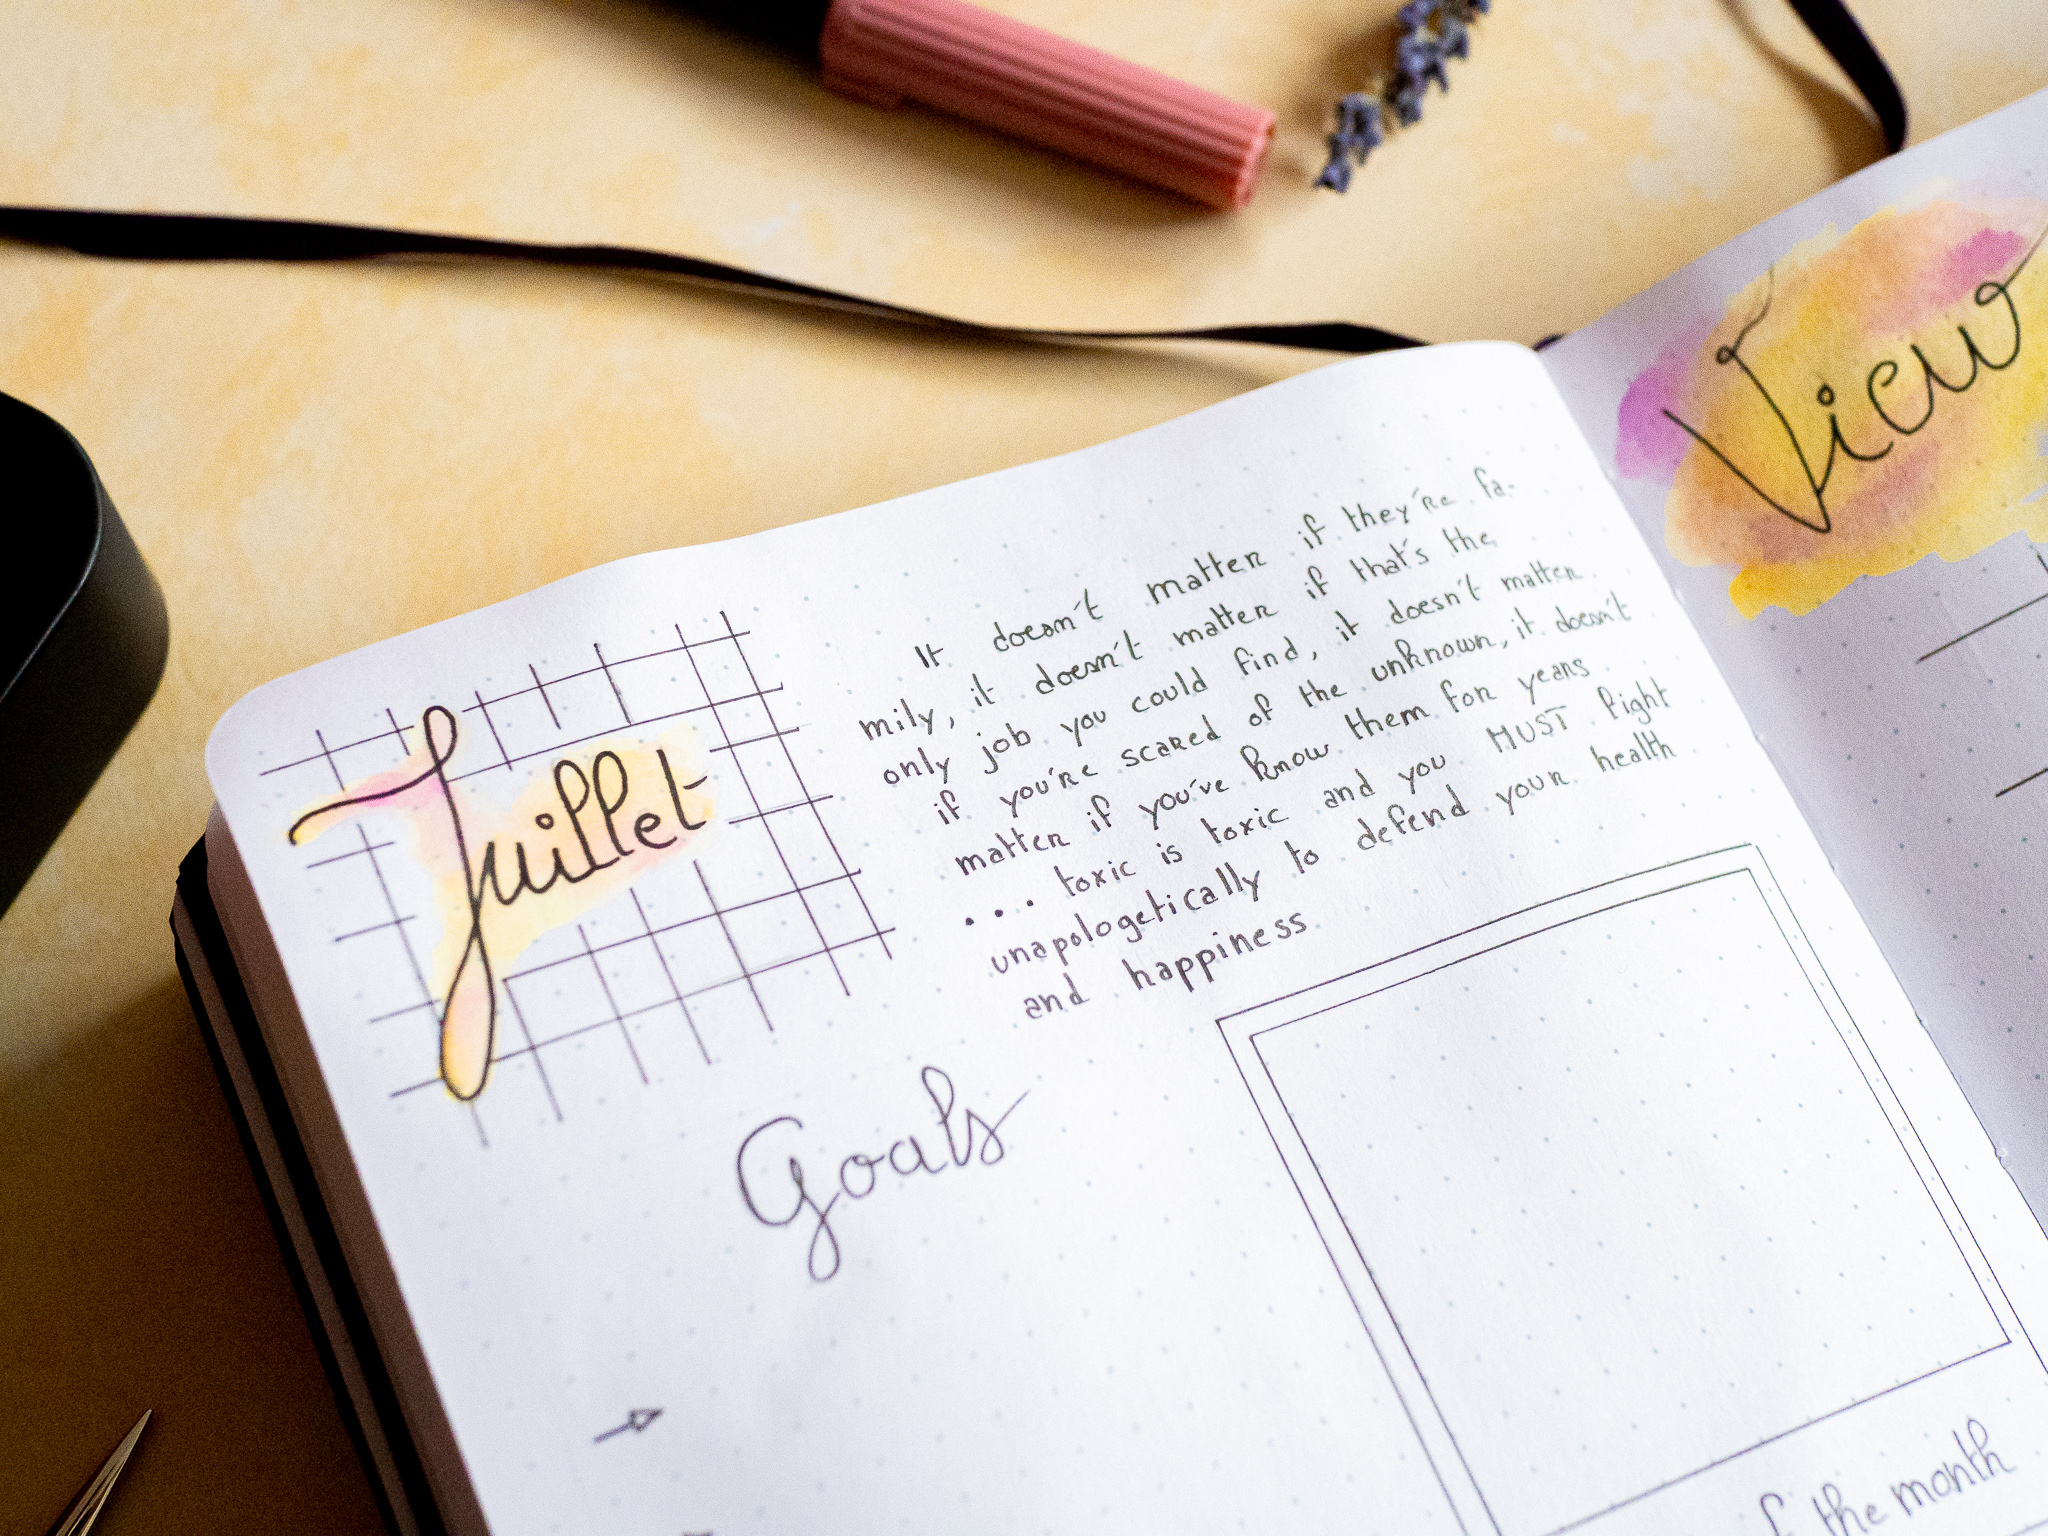 Juillet
It doesn't matter if they're fa-
mily, it doesn't matter if that's the
only job you could find, it doesn't matter
if you're scared of the unknown, it doesn't
matter if you've know them for years
... toxic is toxic and you MUST fight
unapologetically to defend your health
and happiness
Goals
the month
View